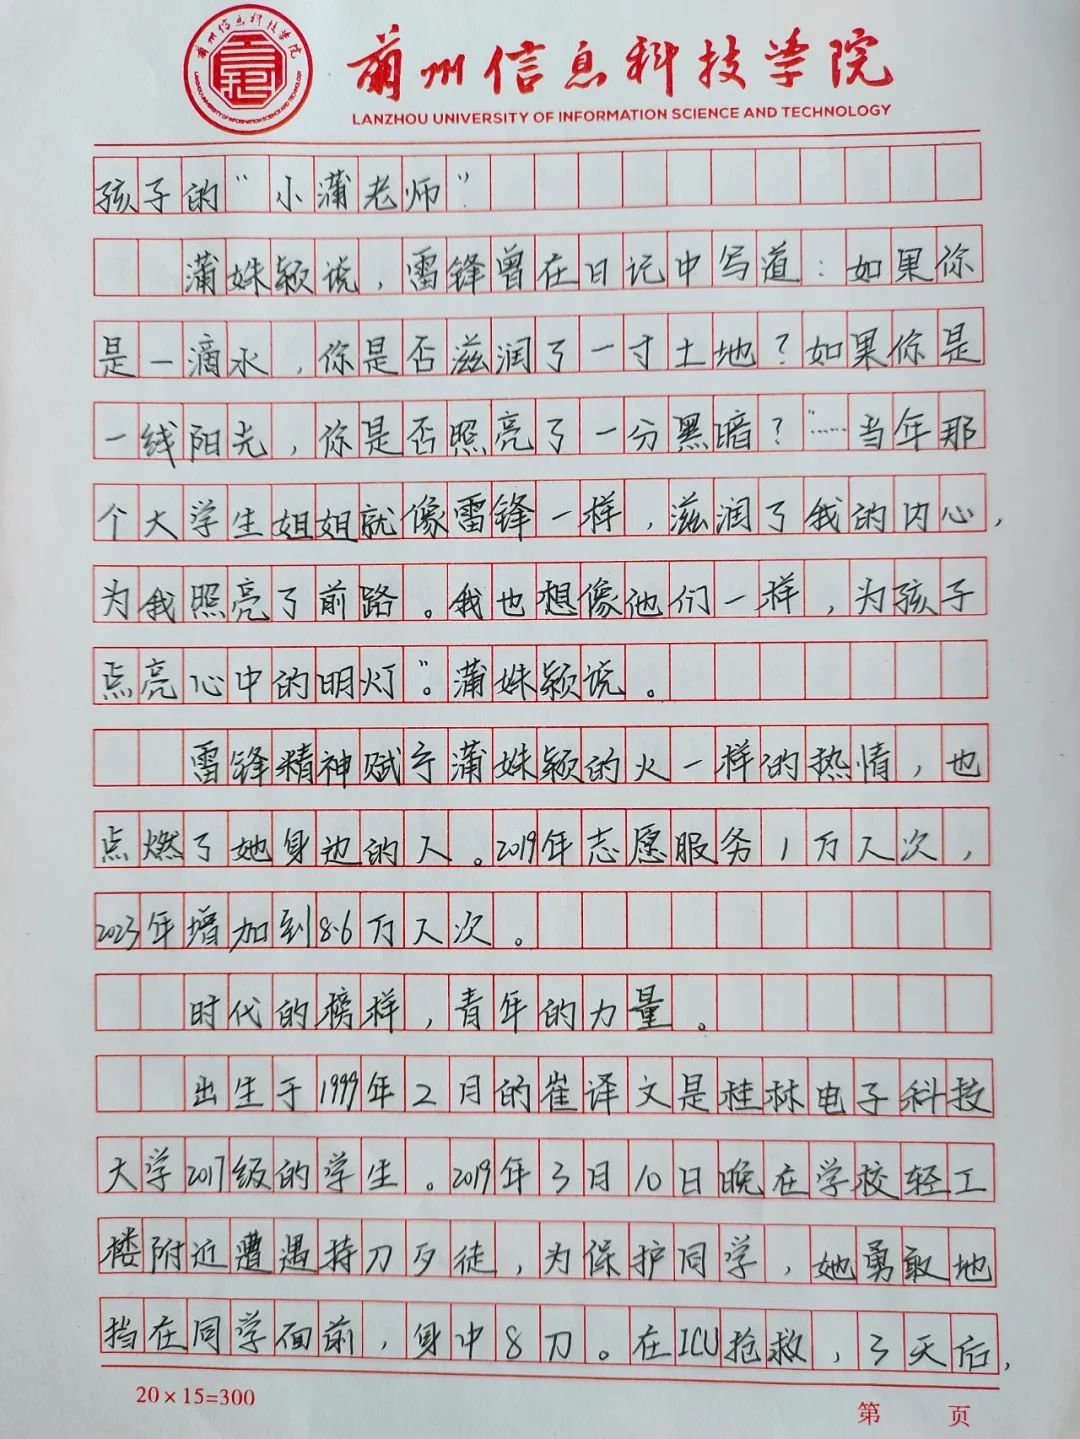 兰州信息科技学院
兰州信息科技学院
LANZHOU UNIVERSITY OF INFORMATION SCIENCE AND TECHNOLOGY
LANZHOU UNIVERSITY OF INFORMATION SCIENCE AND TECHNOLOGY
孩子的“小蒲老师”
蒲姝颖说，雷锋曾在日记中写道：如果你
是一滴水，你是否滋润了一寸土地？如果你是
一线阳光，你是否照亮了一分黑暗？“……当年那
个大学生姐姐就像雷锋一样，滋润了我的内心，
为我照亮了前路。我也想像他们一样，为孩子
点亮心中的明灯”。蒲姝颖说。
雷锋精神赋予蒲姝颖的火一样的热情，也
点燃了她身边的人。2019年志愿服务1万人次，
2023年增加到8.6万人次。
时代的榜样，青年的力量。
出生于1999年2月的崔译文是桂林电子科技
大学2017级的学生。2019年3月10日晚在学校轻工
楼附近遭遇持刀歹徒，为保护同学，她勇敢地
挡在同学面前，身中8刀。在ICU抢救，3天后，
20×15=300
第 页